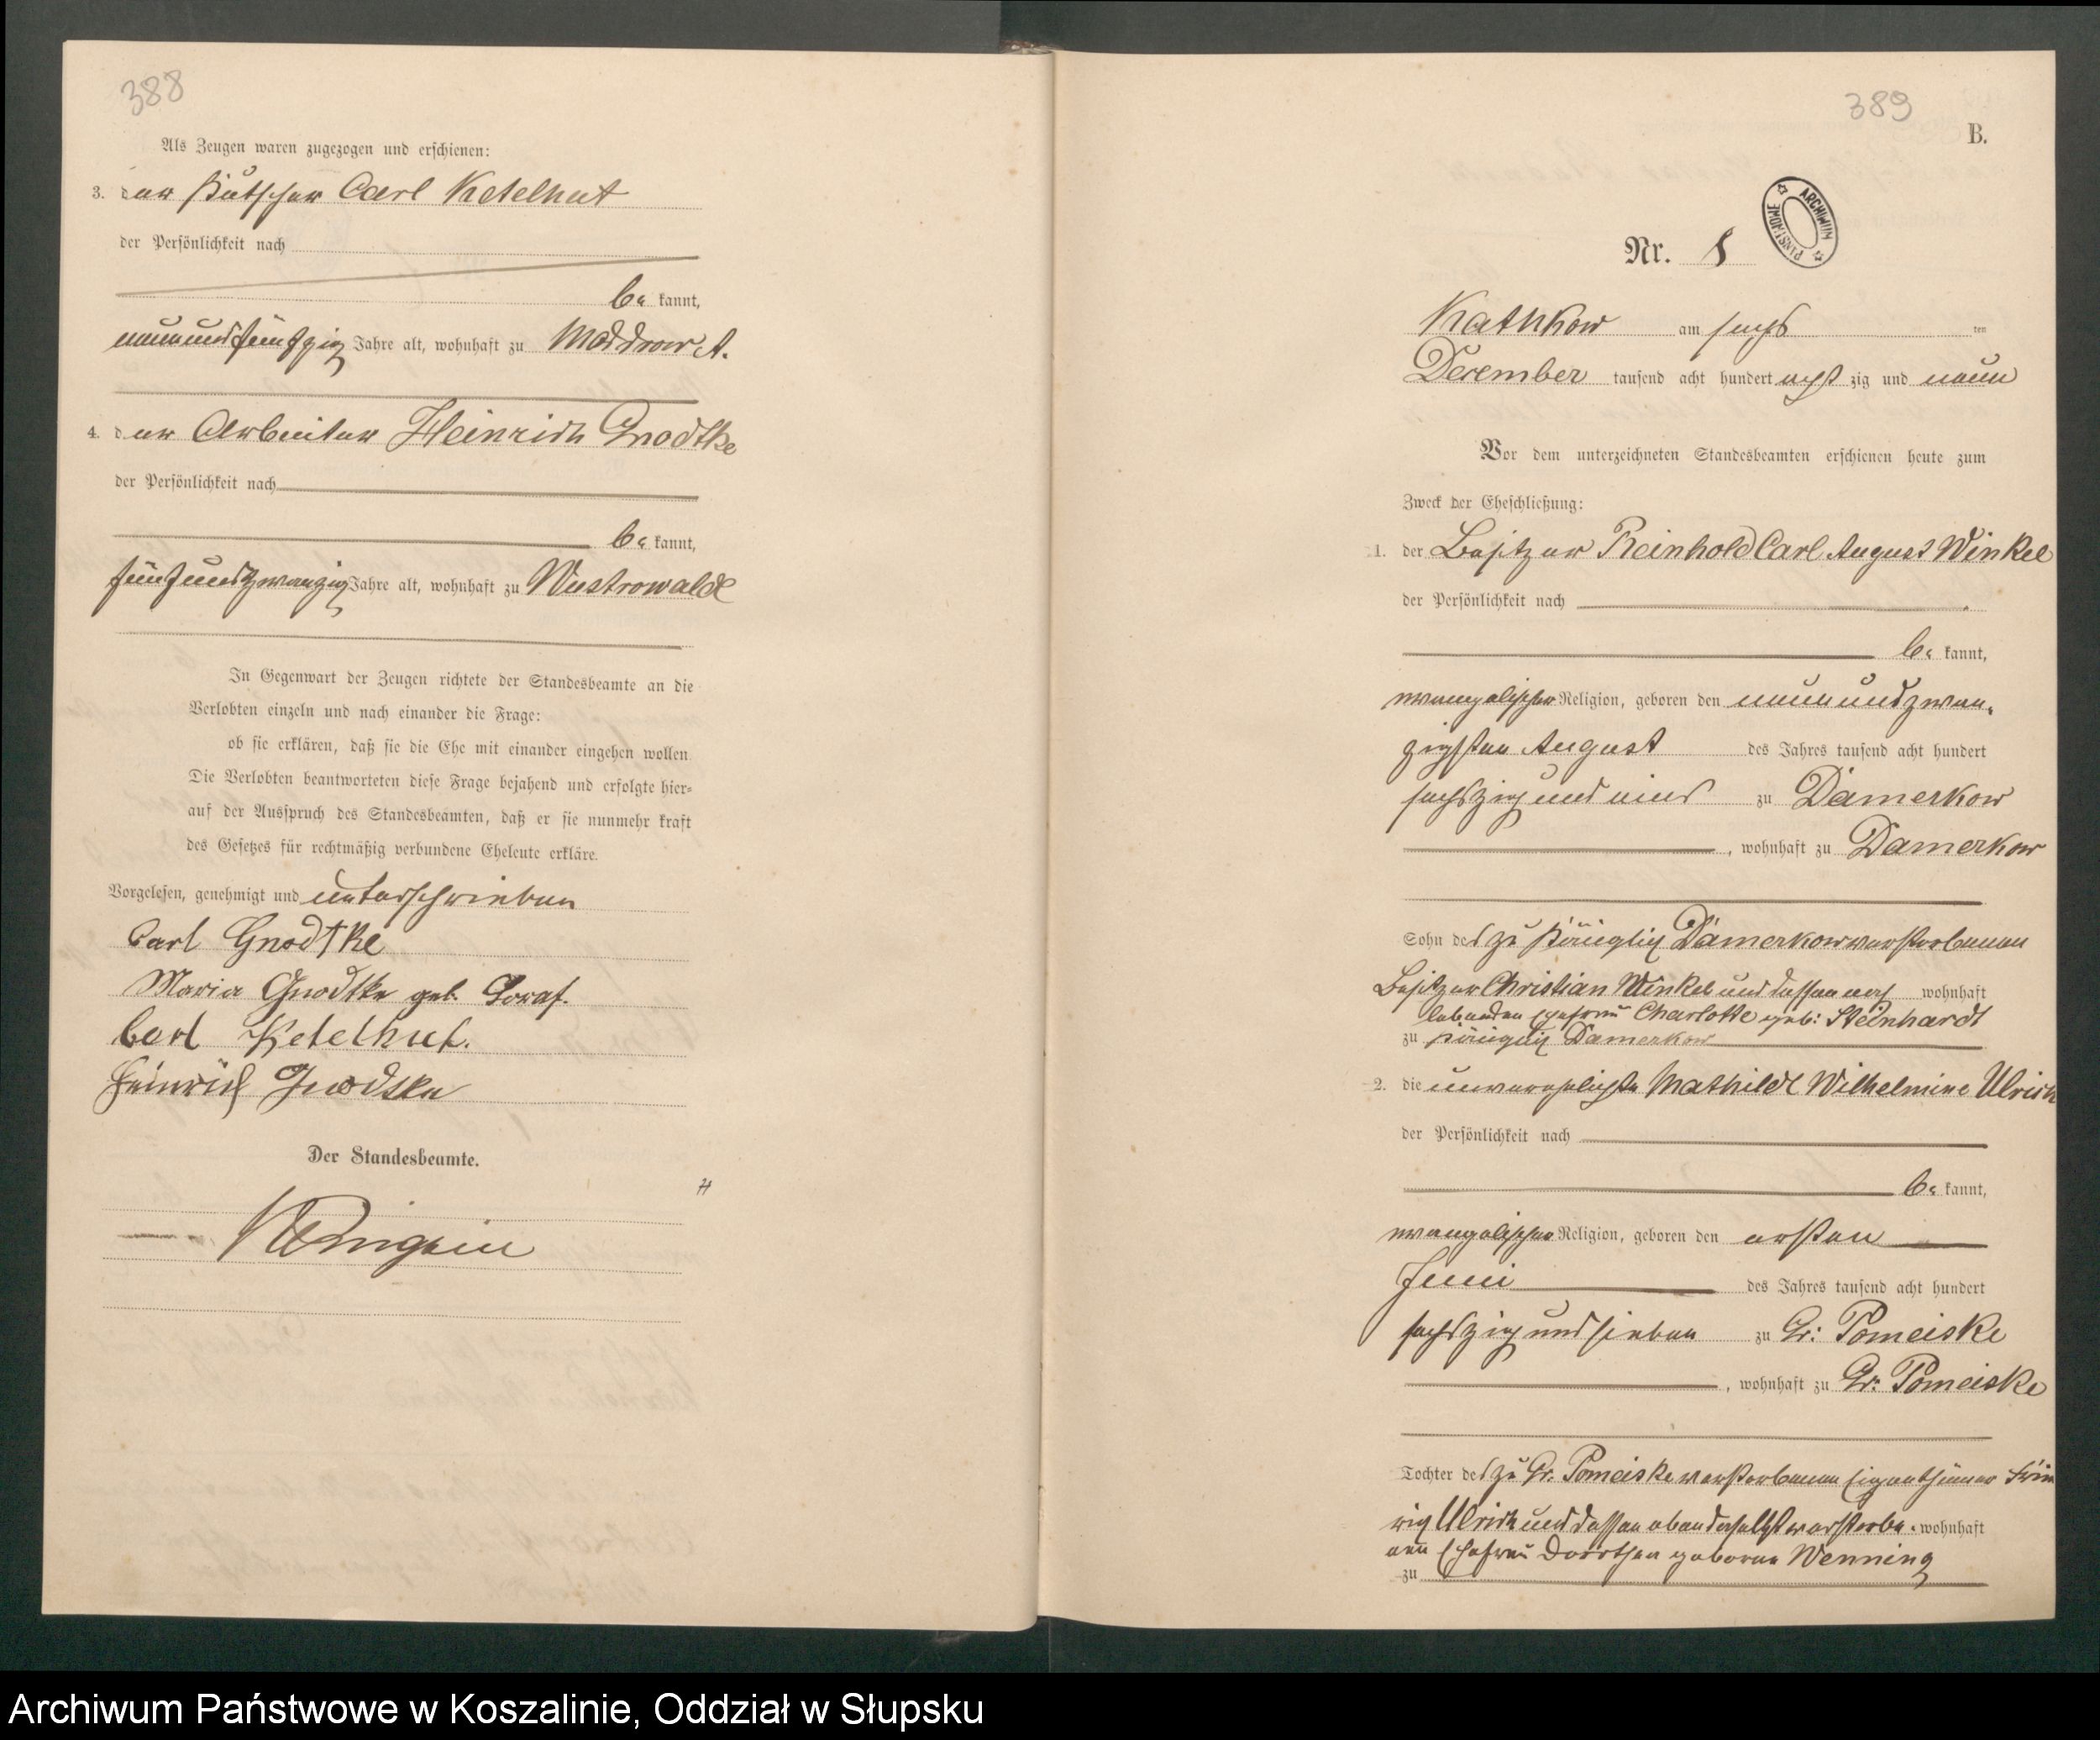 388
Als Zeugen waren zugezogen und erschienen:
3. der Kutscher Carl Ketelhut
der Persönlichkeit nach
be kannt,
neunundfünfzig Jahre alt, wohnhaft zu Moddrow A.
4. der Arbeiter Heinrich Gnodtke
der Persönlichkeit nach
be kannt,
fünfundzwanzig Jahre alt, wohnhaft zu Wustrowalde
In Gegenwart der Zeugen richtete der Standesbeamte an die
Verlobten einzeln und nach einander die Frage:
ob sie erklären, daß sie die Ehe mit einander eingehen wollen
Die Verlobten beantworteten diese Frage bejahend und erfolgte hier-
auf der Ausspruch des Standesbeamten, daß er sie nunmehr kraft
des Gesetzes für rechtmäßig verbundene Eheleute erkläre.
Vorgelesen, genehmigt und unterschrieben
Carl Gnodtke
Maria Gnodtke geb.
Carl Ketelhut.
Heinrich Gnodtke
Der Standesbeamte.
389
B.
ARCHIWUM PAŃSTWOWE
Nr. 8
Kathkow am sechs ten
December tausend acht hundert acht zig und neun
Vor dem unterzeichneten Standesbeamten erschienen heute zum
Zweck der Eheschließung:
1. der Besitzer Reinhold Carl August Winkel
der Persönlichkeit nach
be kannt,
evangelischer Religion, geboren den neunundzwan-
zigsten August des Jahres tausend acht hundert
sechszig und eins zu Damerkow
, wohnhaft zu Damerkow
Sohn des zu Königlich Damerkow verstorbenen
Besitzer Christian Winkel und dessen noch wohnhaft
lebenden Ehefrau Charlotte geb: Steinhardt
zu Königlich Damerkow
2. die unverehelichte Mathilde Wilhelmine Ulrich
der Persönlichkeit nach
be kannt,
evangelischer Religion, geboren den ersten
Juni des Jahres tausend acht hundert
sechszig und sieben zu Gr: Pomeiske
, wohnhaft zu Gr: Pomeiske
Tochter des zu Gr. Pomeiske verstorbenen Eigenthümer Hein
rich Ulrich und dessen ebendaselbst verstorbe- wohnhaft
nen Ehefrau Dorothea geborne Wenning
zu
Archiwum Państwowe w Koszalinie, Oddział w Słupsku